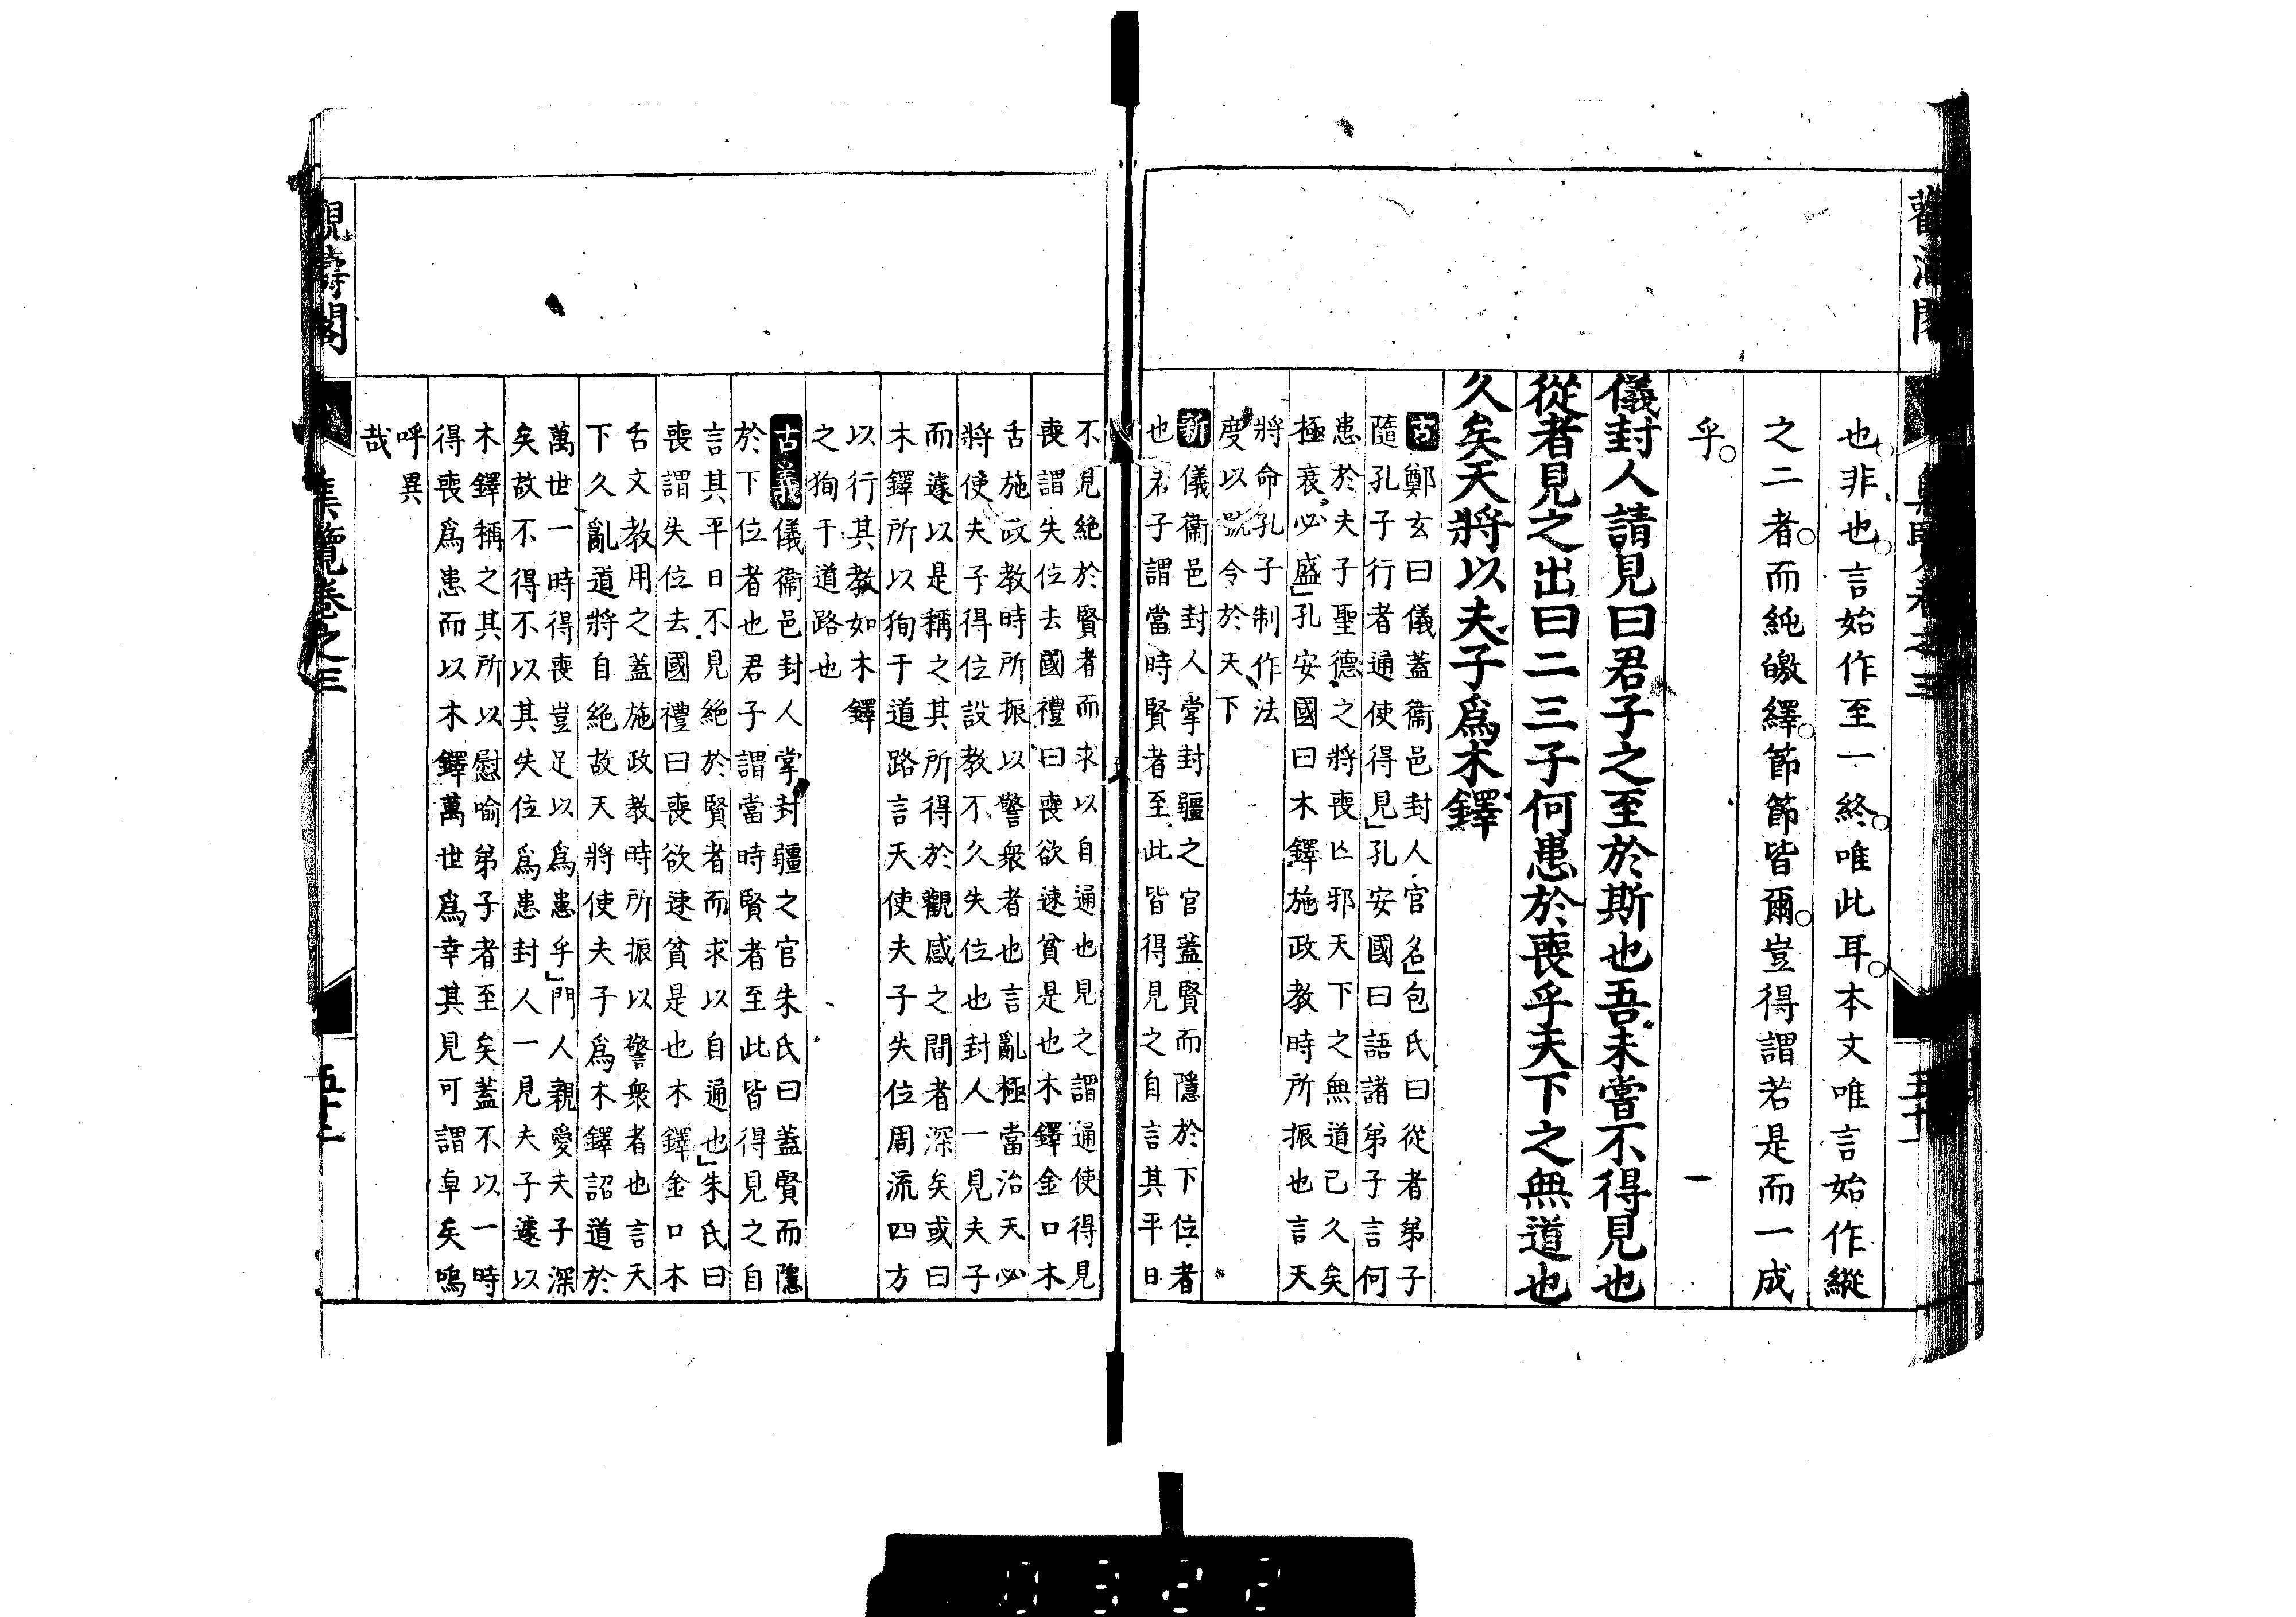 也非也言始作至一終唯此耳本文唯言始作縱
之二者而純皦繹節節皆爾豈得謂若是而一成
乎
儀封人請見曰君子之至於斯也吾未嘗不得見也
從者見之出曰二三子何患於喪乎天下之無道也
久矣天將以夫子爲木鐸
古 鄭玄曰儀蓋衞邑封人官名包氏曰從者弟子
隨孔子行者通使得見孔安國曰語諸弟子言何
患於夫子聖德之將喪亡邪天下之無道已久矣
極衰必盛孔安國曰木鐸施政教時所振也言天
將命孔子制作法
度以號令於天下
新 儀衞邑封人掌封疆之官蓋賢而隱於下位者
也君子謂當時賢者至此皆得見之自言其平日
不見絶於賢者而求以自通也見之謂通使得見
喪謂失位去國禮曰喪欲速貧是也木鐸金口木
舌施政教時所振以警衆者也言亂極當治天必
將使夫子得位設教不久失位也封人一見夫子
而遽以是稱之其所得於觀感之間者深矣或曰
木鐸所以徇于道路言天使夫子失位周流四方
以行其教如木鐸
之徇于道路也
古義 儀衞邑封人掌封疆之官朱氏曰蓋賢而隱
於下位者也君子謂當時賢者至此皆得見之自
言其平日不見絶於賢者而求以自通也朱氏曰
喪謂失位去國禮曰喪欲速貧是也木鐸金口木
舌文教用之蓋施政教時所振以警衆者也言天
下久亂道將自絶故天將使夫子爲木鐸詔道於
萬世一時得喪豈足以爲患乎門人親愛夫子深
矣故不得不以其失位爲患封人一見夫子遽以
木鐸稱之其所以慰喻弟子者至矣蓋不以一時
得喪爲患而以木鐸萬世爲幸其見可謂卓矣嗚
呼異
哉
觀濤閣
集覽卷之三
五十二
0322